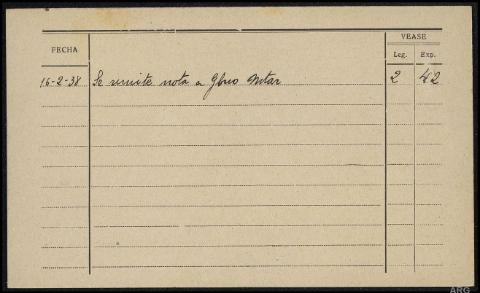 VEASE
FECHA
Leg. Exp.
16-2-38 Se remite nota a Gbno Mtar 2 42
ARG